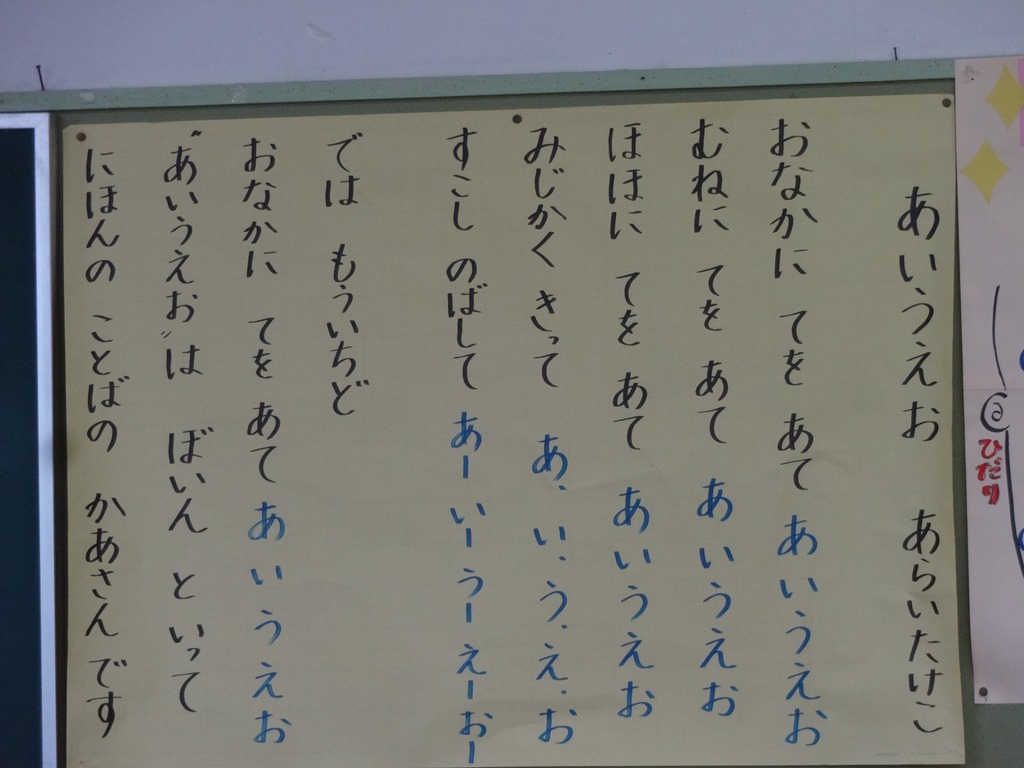 あいうえお　あらいたけこ
おなかに　てを　あて　あいうえお
むねに　てを　あて　あいうえお
ほほに　てを　あて　あいうえお
みじかく　きって　あ、い、う、え、お
すこし　のばして　あーいーうーえーおー
では　もういちど
おなかに　てを　あて　あいうえお
“あいうえお”は　ぼいん　と　いって
にほんの　ことばの　かあさん　です
ひだり